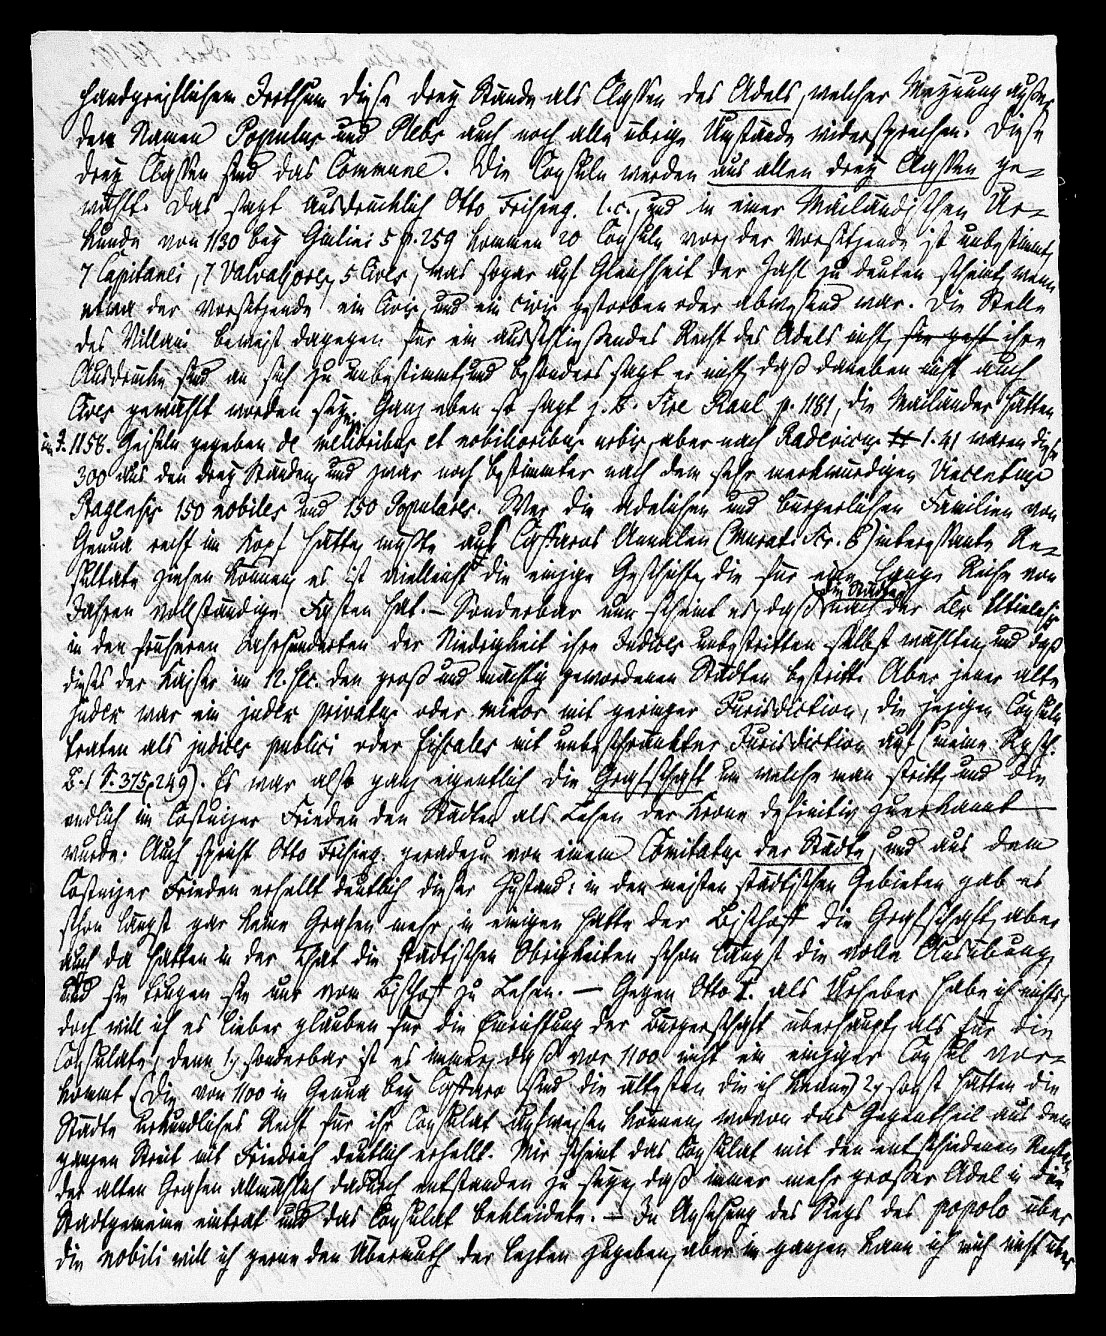 handgreiflichem Irrthum diese drey Stände als Classen des Adels, welcher Meynung außer
dem Namen Populus und Plebs auch noch alle übrige Umstände widersprechen. Diese
drey Classen sind das Commune. Die Consuln werden aus allen drey Classen ge-
wählt. Das sagt ausdrücklich Otto Frising. l.c., und in einer Mailändischen Ur-
kunde von 1130 bey Giulini 5 p. 259 kommen 20 Consuln vor, der Vorsitzende ist unbestimmt,
7 Capitanei, 7 Valvassores, 5 Cives, was sogar auf Gleichheit der Zahl zu deuten scheint wenn
etwa der Vorsitzende ein Civis, und ein civis gestorben oder abwesend war. Die Stelle
des Villani beweist dagegen für ein ausschließendes Recht des Adels nicht, ihre
Ausdrücke sind an sich zu unbestimmt, und besonders sagt er nicht daß daneben nicht auch
Cives gewählt worden sey. Ganz eben so sagt z. B. Sire Raul p. 1181, die Mailänder hätten
im J. 1158. Geiseln gegeben de melioribus et nobilioribus urbis, aber nach Radevicus 1. 41 waren diese
300 aus den drey Ständen, und zwar noch bestimmter nach dem sehr merkwürdigen Vincentius
Pragensis 150 nobiles und 150 Populares. Wer die adelichen und bürgerlichen Familien von
Genua recht im Kopf hätte, müßte aus Caffaros Annalen (Murat. Scr. 6) interessante Re-
sultate ziehen können, es ist vielleicht die einzige Geschichte, die für eine lange Reihe von
Jahren vollständige Fasten hat. – Sonderbar nun scheint es, daß die Städte nach der Lex
in den früheren Jahrhunderten der Niedrigkeit ihre Judices unbestritten selbst wählten, und daß
dieses der Kaiser im 12. Sec. den groß und mächtig gewordenen Städten bestritt. Aber jener alte
Judex war ein judex privatus oder minor mit geringer Jurisdiction, die jezigen Consuln
traten als judices publici oder fiscales mit unbeschränkter Jurisdiction auf (meine Rgsch.
B. 1 S. 375, 249). Es war also ganz eigentlich die Grafschaft um welche man stritt, und die
endlich im Costnizer Frieden den Städten als Lehen der Krone definitiv zuerkannt
wurde. Auch spricht Otto Frising. geradezu von einem Comitatus der Städte, und aus dem
Costnizer Frieden erhellt deutlich dieser Zustand: in den meisten städtischen Gebieten gab es
schon längst gar keine Grafen mehr, in einigen hatte der Bischoff die Grafschaft, aber
auch da hatten in der That die städtischen Obrigkeiten schon längst die volle Ausübung
und sie trugen sie nur vom Bischoff zu Lehen. – Gegen Otto I. als Urheber habe ich nichts,
doch will ich es lieber glauben für die Einrichtung der Bürgerschaft überhaupt, als für die
Consulate, denn 1) sonderbar ist es immer, daß vor 1100 nicht ein einziger Consul vor-
kommt (Die von 1100 in Genua bey Caffaro sind die ältesten die ich kenne) 2) sonst hätten die
Städte urkundliches Recht für ihr Consulat aufweisen können, wovon das Gegentheil aus dem
ganzen Streit mit Friedrich deutlich erhellt. Mir scheint das Consulat mit den entschiedenen Rechten
der alten Grafen allmählich dadurch entstanden zu seyn, daß immer mehr großer Adel in die
Stadtgemeine eintrat und das Consulat bekleidete. – In Ansehung des Siegs des popolo über
die nobili will ich gerne den Übermuth der Lezten zugeben, aber im ganzen kann ich mich nicht über